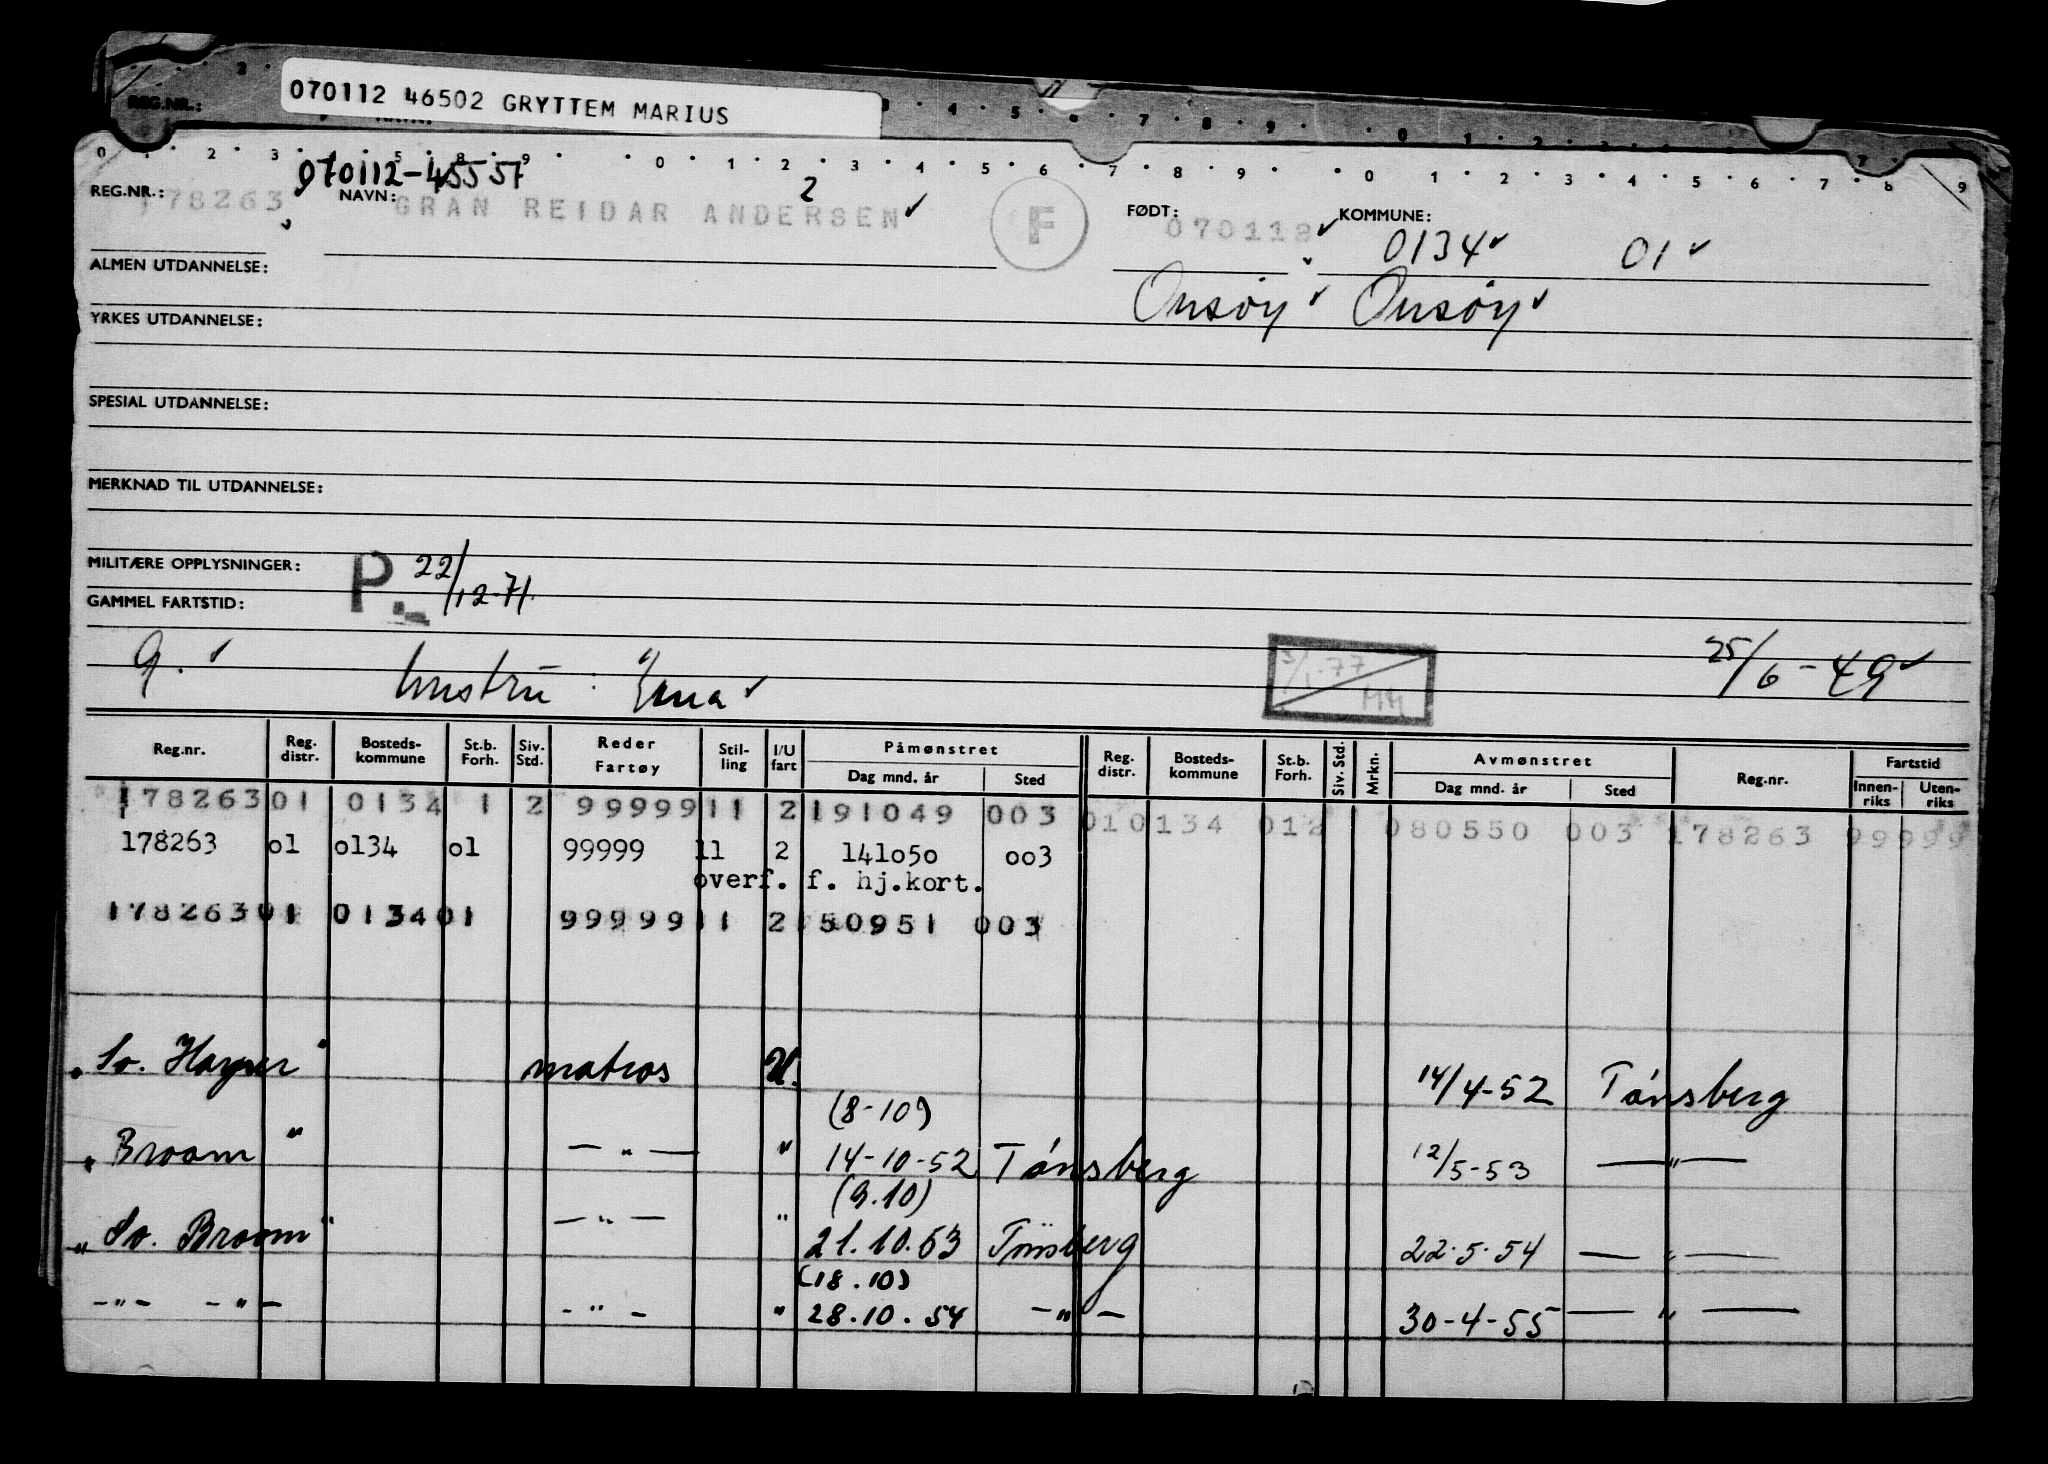 REG.NR.:
070112 46502 GRYTTEM MARIUS
070112-45557
2
REG.NR.: 178263
NAVN: GRAN REIDAR ANDERSEN ✓
F
FØDT: 070112 ✓
KOMMUNE: 0134 ✓ 01 ✓
ALMEN UTDANNELSE:
Onsøy ✓ Onsøy ✓
YRKES UTDANNELSE:
SPESIAL UTDANNELSE:
MERKNAD TIL UTDANNELSE:
MILITÆRE OPPLYSNINGER: P. 22/12-71.
GAMMEL FARTSTID:
g. ✓ hustru : Erna ✓ 3/1-77 25/6-49 ✓
Reg.nr. Reg. distr. Bosteds-kommune St.b. Forh. Siv. Std. Reder Fartøy Stil-ling I/U fart Påmønstret Dag mnd. år Sted Reg. distr. Bosteds-kommune St.b. Forh. Siv. Std. Mrkn. Avmønstret Dag mnd. år Sted Reg.nr. Fartstid Innen-riks Uten-riks
178263 01 0134 1 2 99999 11 2 191049 003 01 0134 012 080550 003 178263 99999
178263 o1 o134 o1 99999 11 2 141o5o oo3
overf. f. hj.kort.
178263 01 0134 01 99999 11 2 50951 003
" So. Harper " matros U. 14/4-52 Tønsberg
(8-10)
" Broom " — " — " 14-10-52 Tønsberg 12/5-53 — " —
(9.10)
" So. Broom " — " — " 21.10.53 Tönsberg 22.5.54 — " —
(18.10)
— " — — " — — " — " 28.10.54 — " — 30-4-55 — " —